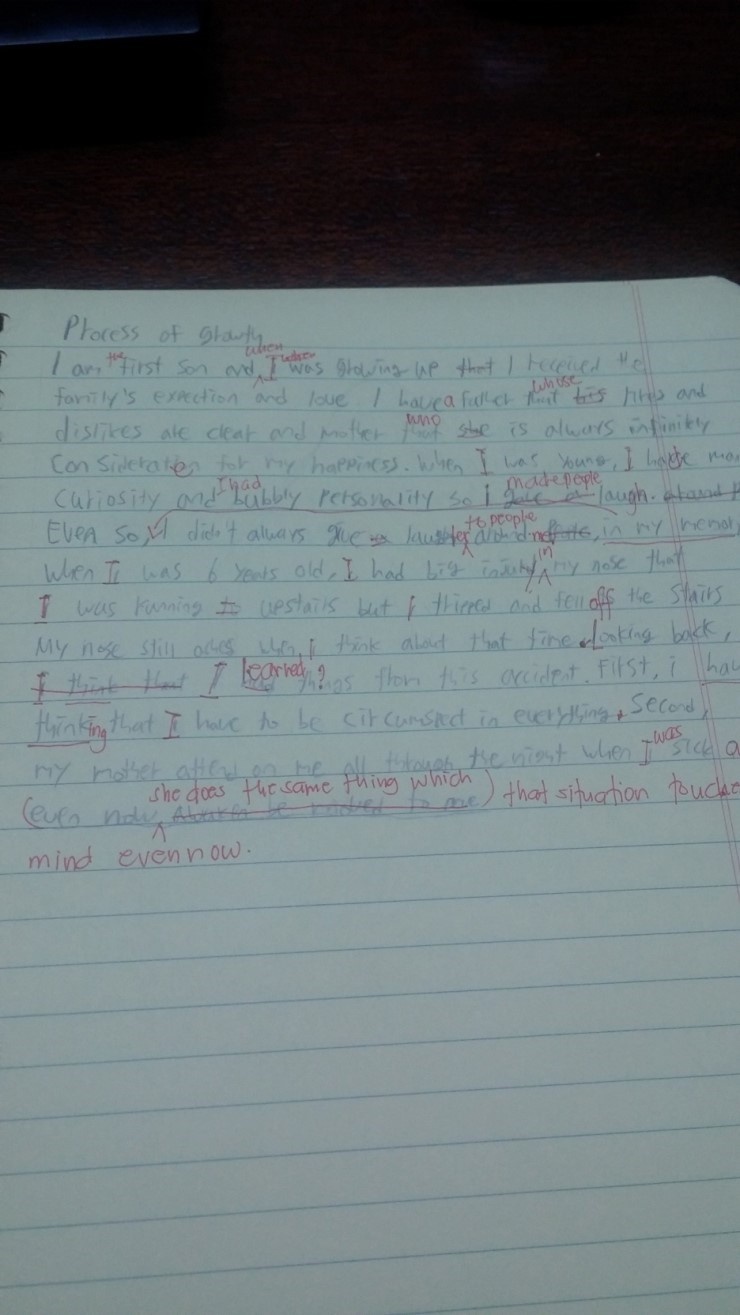 Process of growty
I am the first son and when I was growing up that I received the
family's expection and love. I have a father that whose his likes and
dislikes are clear and mother that who she is always infinitly
Consideration for my happiness. When I was young, I
curiosity and I had bubbly personality so I made people laugh.
Even so, I didn't always give laughter to people around in my
When I was 6 years old, I had big injury in my nose that
I was running to upstairs but I tripped and fell off the stairs
My nose still aches when I think about that time. Looking back,
I think that I learned? things from this accident. First, i
thinking that I have to be circumsact in everything. Second,
my mother attend on me all through the night when I was sick
(even now, she does the same thing which) that situation
mind even now.